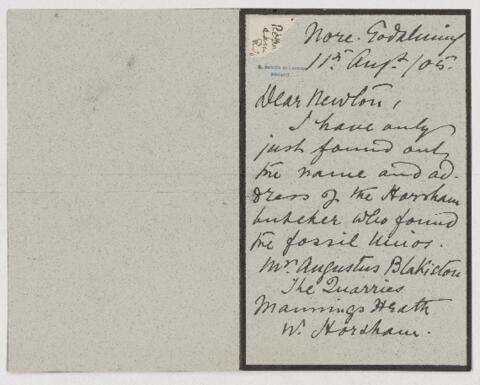 Nore. Godalming
11th Augst/05.
Dear Newton,
I have only
just found out
the name and ad-
dress of the Horsham
butcher who found
the fossil Unios.
Mr. Augustus Blakiston
The Quarries
Mannings Heath
Nr. Horsham.